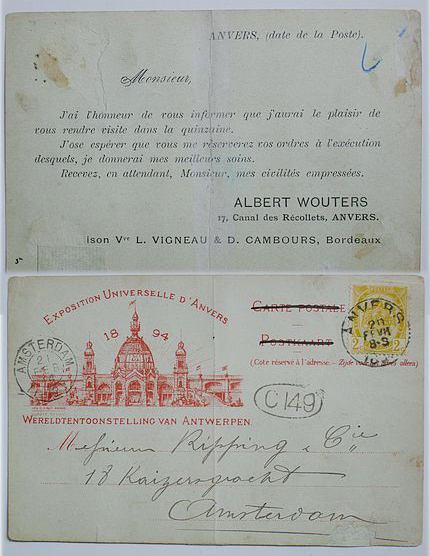 ANVERS, (date de la Poste).
Monsieur,
J'ai l'honneur de vous informer que j'aurai le plaisir de
vous rendre visite dans la quinzaine.
J'ose espérer que vous me réserverez vos ordres à l'exécution
desquels, je donnerai mes meilleurs soins.
Recevez, en attendant, Monsieur, mes civilités empressées.
ALBERT WOUTERS
17, Canal des Récollets, ANVERS.
ison Vve L. VIGNEAU & D. CAMBOURS, Bordeaux
EXPOSITION UNIVERSELLE D'ANVERS
1894
CARTE POSTALE
POSTKAART
(Côte réservé à l'adresse. — Zijde
ANVERS
20
8-S
2 2
AMSTERDAM
C 149
WERELDTENTOONSTELLING VAN ANTWERPEN.
Messieurs Ripping & Cie
18 Kaizersgracht
Amsterdam